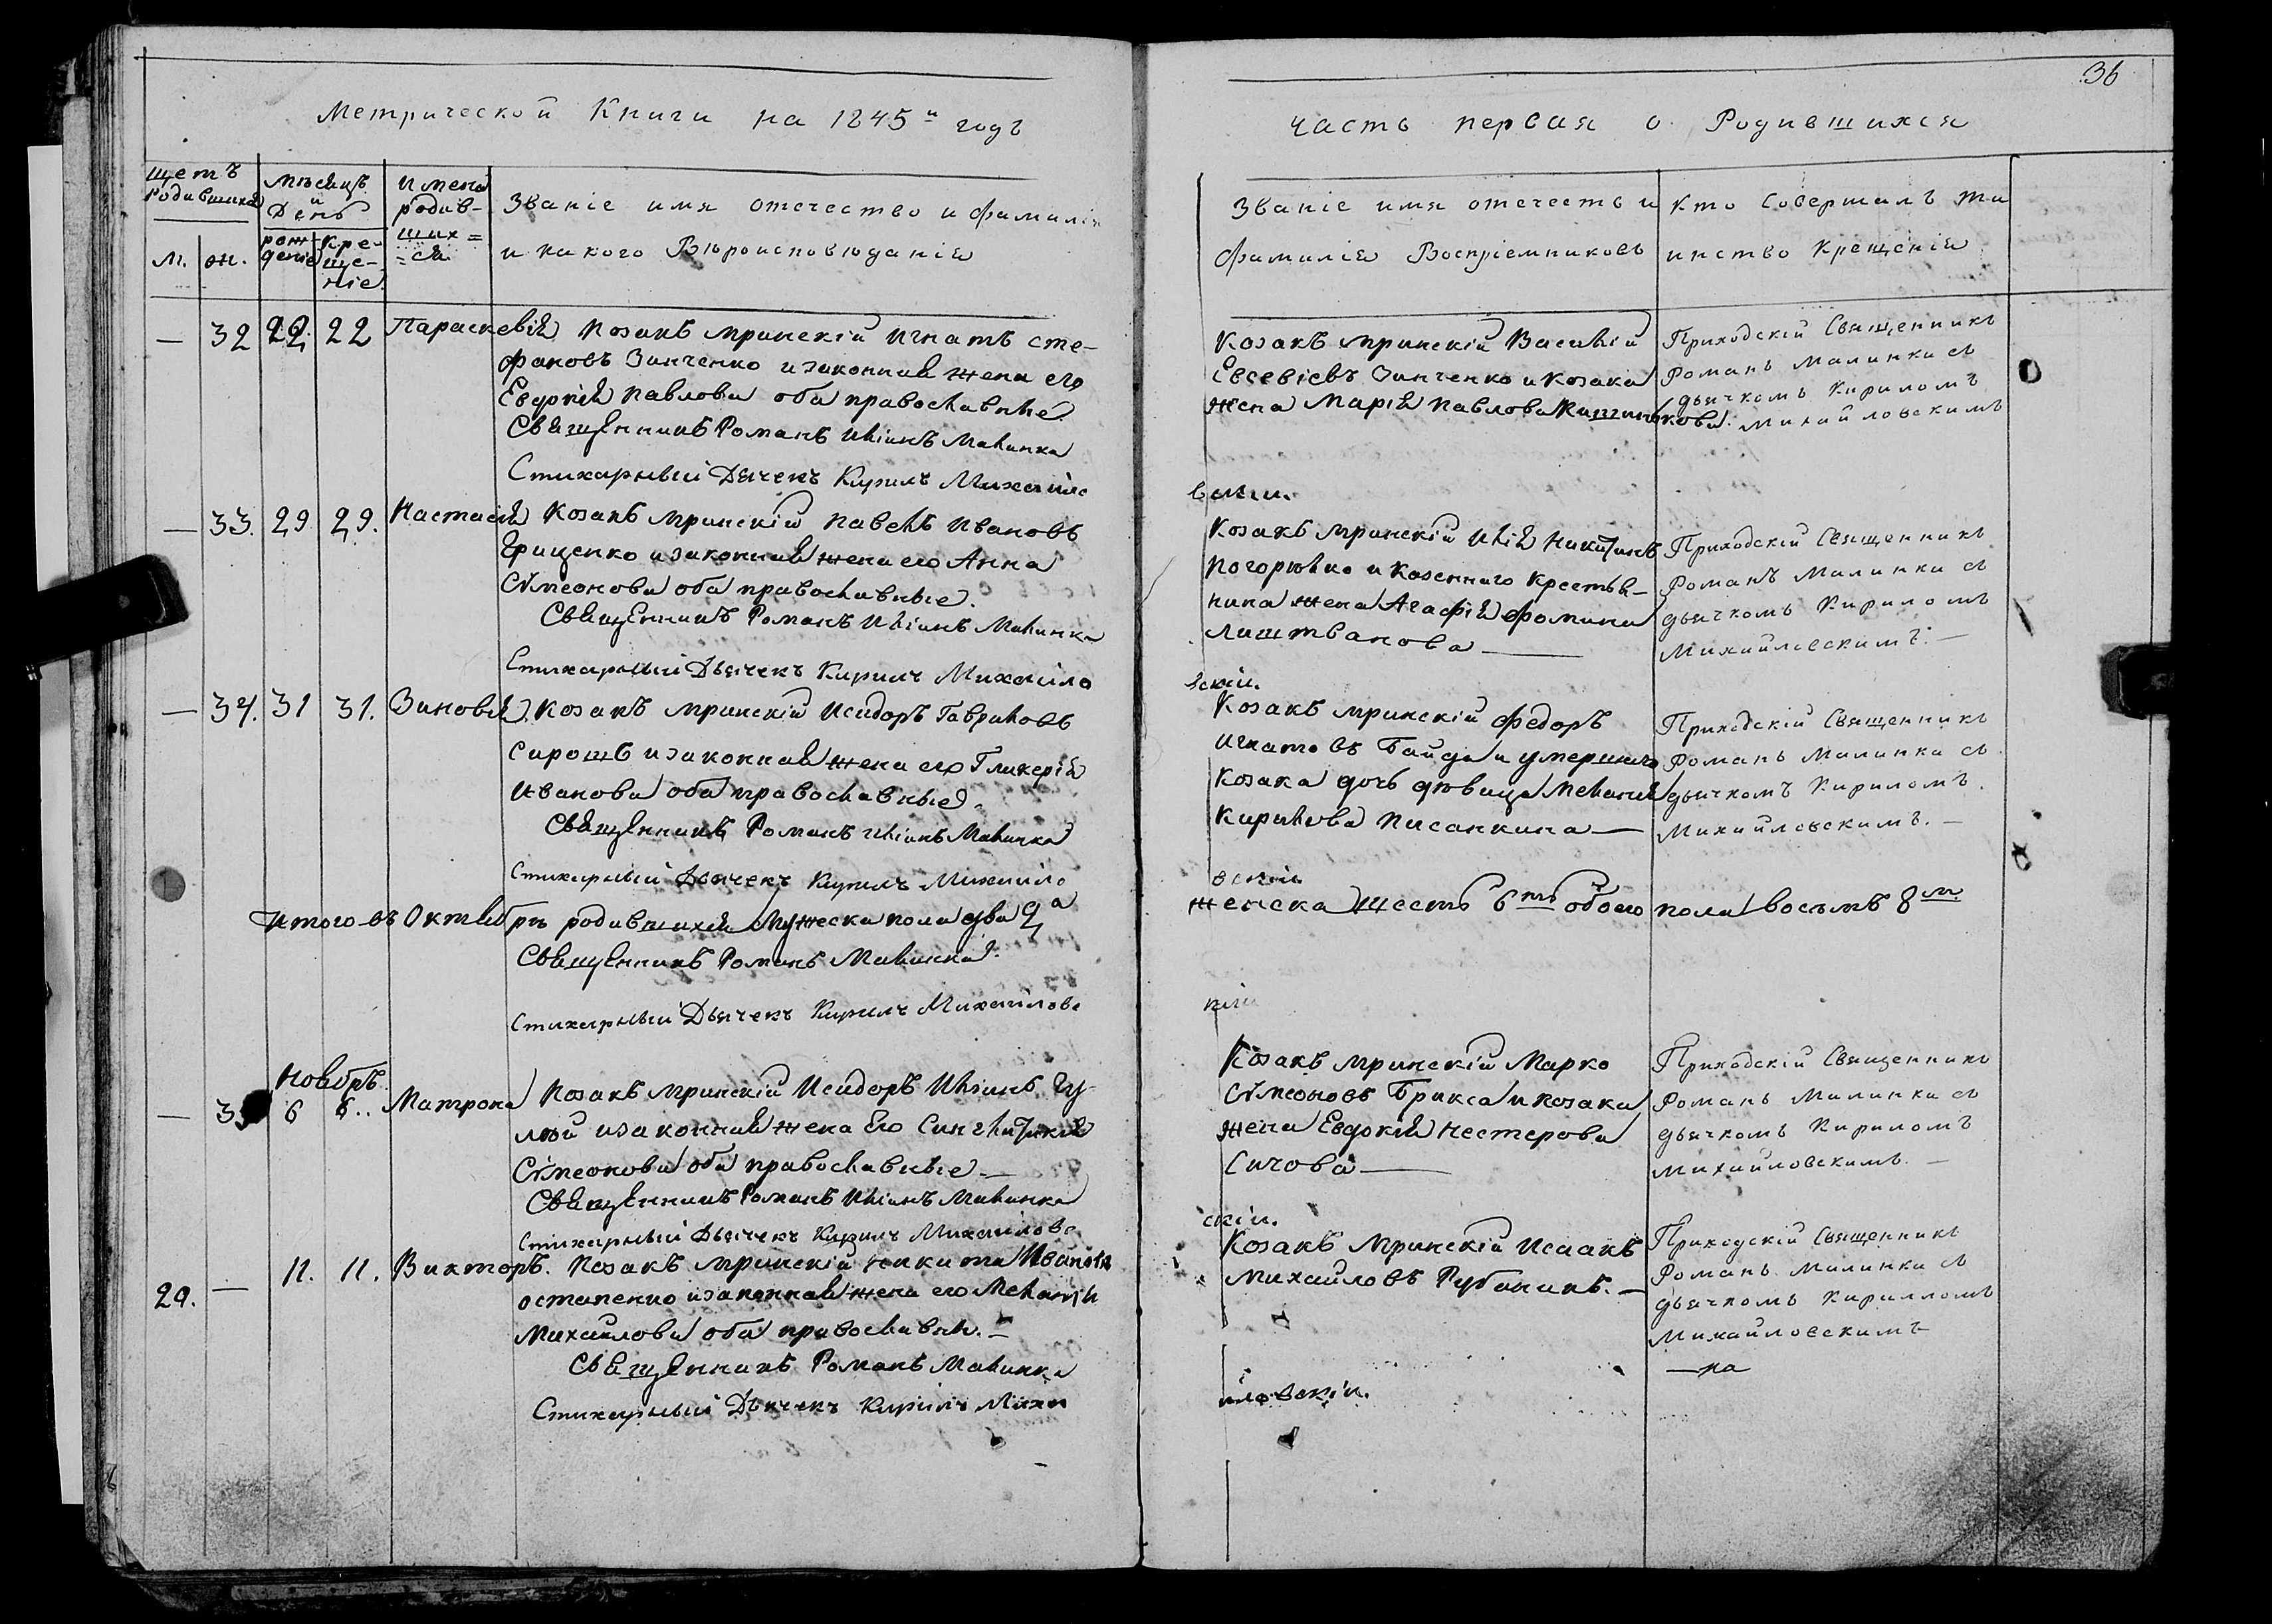 Метрической Книги на 1845й годъ
щетъ родившихся
М. Ж.
мѣсяцъ и День
рождение
креще-ніе.
имена родив-ших=ся
Званіе имя отечество и фамилія
и какого Вѣроисповѣданія
— 32 22. 22 Параскевія Козакъ мринскій Игнатъ Сте-
фановъ Зинченко и законная жена его
Евдокія Павлова оба православные
Священникъ Романъ Иліинъ Малинка
Стихарный Дьячекъ Кирилъ Михайло
— 33. 29 29. Настасія Козакъ мринскій Павелъ Ивановъ
Грищенко и законная жена его Анна
Сѵмеонова оба православные.
Священникъ Романъ Иліинъ Малинка
Стихарный Дьячекъ Кирилъ Михайло
— 34. 31 31. Зиновія. Козакъ мринскій Исидоръ Гавриловъ
Сирошъ и законная жена его Гликерія
Иванова оба православные.
Священникъ Романъ Иліинъ Малинка
Стихарный Дьячекъ Кирилъ Михайло
Итого въ Октябрѣ родившихся Мужеска пола два 2а
Священникъ Романъ Малинка.
Стихарный Дьячекъ Кирилъ Михайловс
Ноябрь
— 6 6.. Матрона Козакъ мринскій Исидоръ Иліинъ Гу-
лый и законная жена Его Синглитикія
Сѵмеонова оба православные —
Священникъ Романъ Иліинъ Малинка
Стихарный Дьячекъ Кирилъ Михайловс
29. — 11. 11. Викторъ. Козакъ мринскій Никита Ивановъ
Остапенко и законная жена его Меланія
Михайлова оба православн. —
Священникъ Романъ Малинка
Стихарный Дьячекъ Кирилъ Миха
36
часть первая о Родившихся
Званіе имя отечество и
фамилія Воспріемниковъ
кто Совершалъ таи
инство Крещенія
Козакъ мринскій Василій
Евсевіевъ Зинченко и Козака
жена Марія Павлова
Приходскій Священникъ
Романъ Малинка съ
дьячкомъ Кириломъ
Михайловскимъ
вскій.
Козакъ мринскій Илія Никитинъ
Погорѣлко и Казенного Крестья-
нина жена Агафія Фомина
Лиштванова —
Приходскій Священникъ
Романъ Малинка съ
дьячкомъ Кириломъ
Михайловскимъ. —
вскій.
Козакъ мринскій Федоръ
Игнатовъ Байда и умершого
Козака дочь дѣвица Меланія
Кирилова Писанкина —
Приходскій Священникъ
Романъ Малинка съ
дьячкомъ Кириломъ.
Михайловскимъ. —
вскій
женска шесть 6ть обоего пола восемъ 8м.
кій
Козакъ мринскій Марко
Сѵмеоновъ Брикса и козака
жена Евдокія Нестерова
Сичова —
Приходскій Священникъ
Романъ Малинка съ
дьячкомъ Кириломъ
Михайловскимъ. —
скій.
Козакъ Мринскій Исаакъ
Михайловъ Рубаникъ. —
Приходскій Священникъ
Романъ Малинка съ
дьячкомъ Кирилломъ
Михайловскимъ
—на
йловскій.